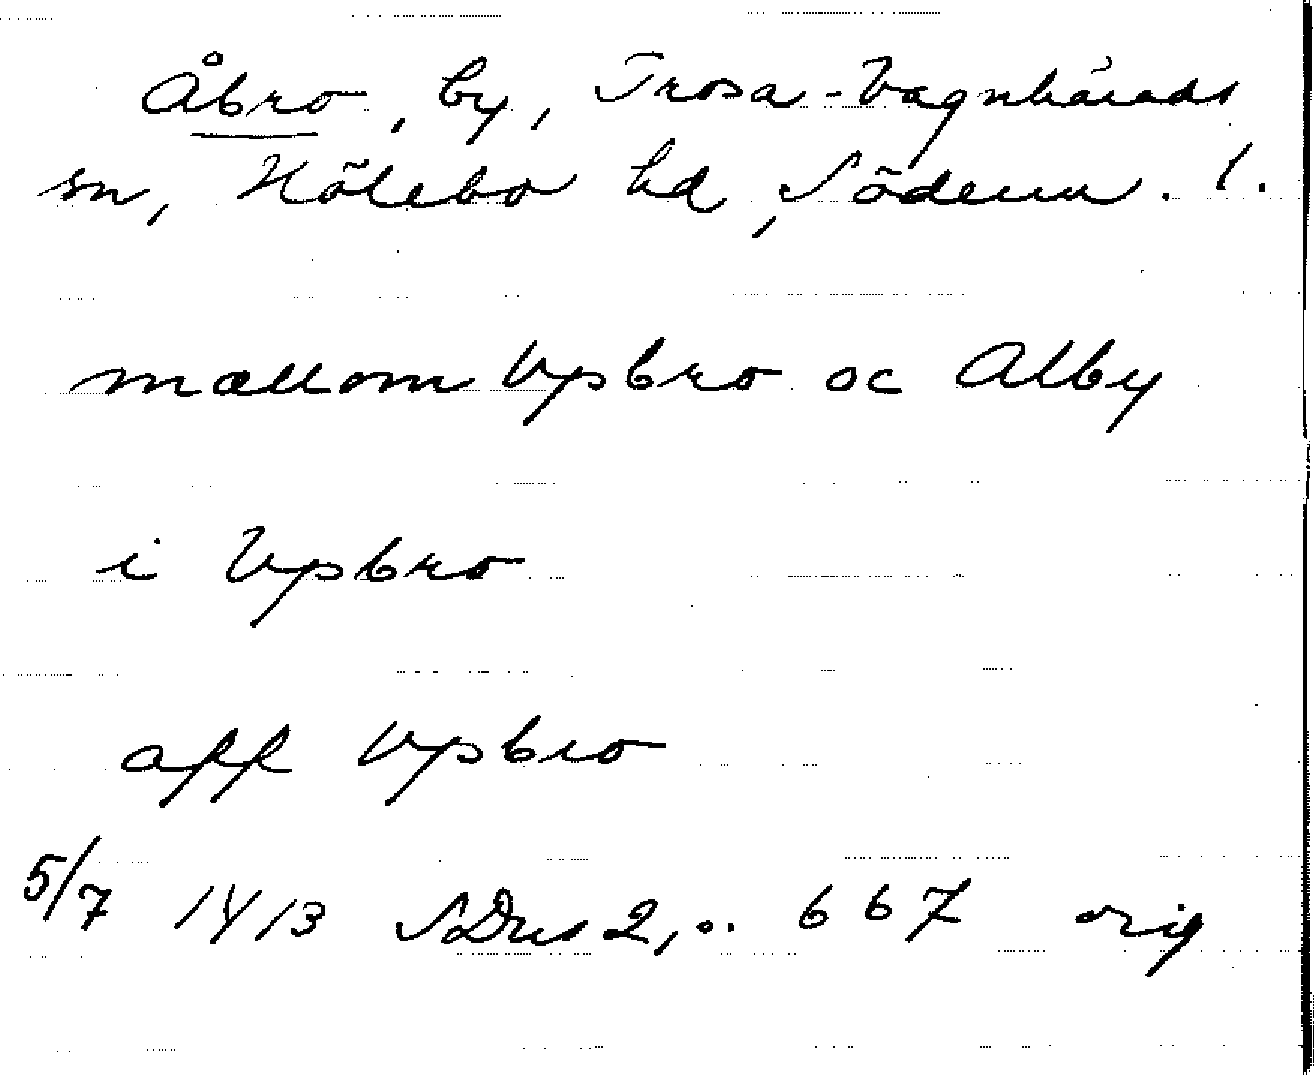 Åbro, by, Trosa-Vagnhärads
sn, Hölebo hd, Söderm. l.
mællom Vpsbro oc Alby
i Vpsbro
aff Vpsbro
5/7 1413 SDns 2, s. 667 orig